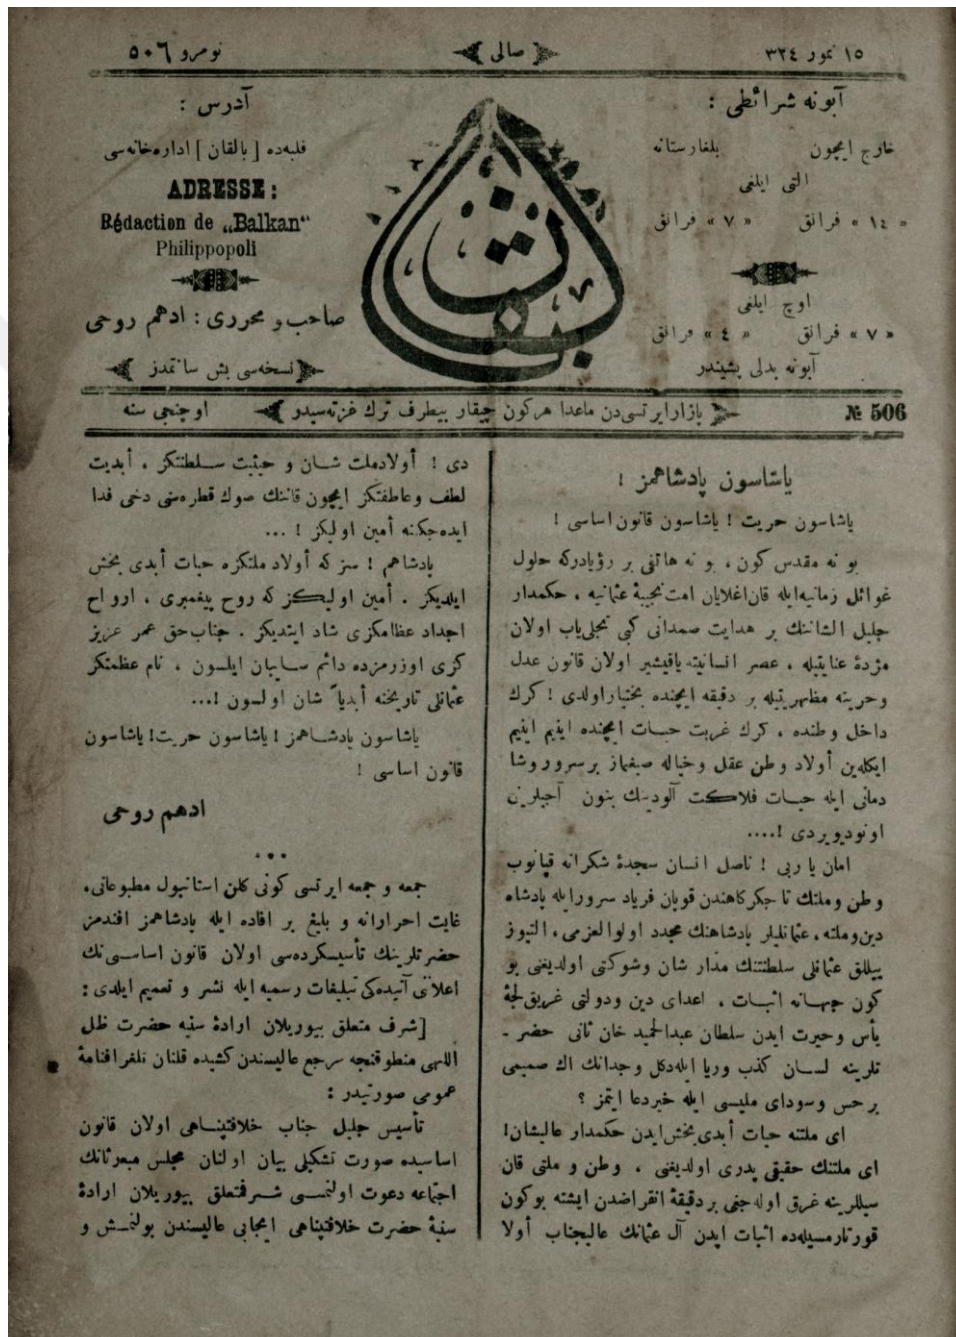 ١٥ تموز ٣٢٤
صالی
نومرو ٥٠٦
آبونه شرائطی :
خارج ایچون بلغارستانه
التی ایلغی
« ١٤ » فرانق « ٧ » فرانق
اوچ ایلغی
« ٧ » فرانق « ٤ » فرانق
آبونه بدلی پشیندر
بالقان
آدرس :
فلبه‌ده [ بالقان ] اداره‌خانه‌سی
ADRESSE :
Rédaction de „Balkan“
Philippopoli
صاحب و محرری : ادهم روحی
نسخه‌سی بش سانتمدر
№ 506
بازار ایرتسی‌دن ماعدا هر کون چیقار بیطرف ترک غزته‌سیدر
اوچنجی سنه
یاشاسون پادشاهمز !
یاشاسون حریت ! یاشاسون قانون اساسی !
بو نه مقدس کون ، بو نه هاتفی بر رؤیادرکه حلول
غوائل زمانیه‌ایله قان‌اغلایان امت نجیبهٔ عثمانیه ، حکمدار
جلیل الشاننك بر هدایت صمدانی کبی تجلی‌یاب اولان
مژدهٔ عنایتیله ، عصر انسانیته یاقیشیر اولان قانون عدل
وحریته مظهریتیله بر دقیقه ایچنده بختیار اولدی ! کرك
داخل وطنده ، کرك غربت حیات ایچنده اینیم اینیم
ایکله‌ین أولاد وطن عقل وخیاله صیغماز بر سرور وشا
دمانی ایله حیات فلاکت آلودینك بتون آجیلرینی
اونودیویردی !....
امان یا ربی ! ناصل انسان سجدهٔ شکرانه قپانوب
وطن وملتك تا جکرکاهندن قوپان فریاد سرورایله پادشاه
دین‌وملته ، عثمانلیلر پادشاهنك مجدد اولوالعزمی ، التیوز
ییللق عثمانلی سلطنتنك مدار شان وشوکتی اولدیغنی بو
کون جهانه اثبات ، اعدای دین ودولتی غریق لجهٔ
یأس وحیرت ایدن سلطان عبدالحمید خان ثانی حضر ـ
تلرینه لسان کذب وریا ایله‌دکل وجدانك اك صمیمی
بر حس وسودای ملیسی ایله خیردعا ایتمز ؟
ای ملتنه حیات أبدی بخش‌ایدن حکمدار عالیشان!
ای ملتنك حقیقی پدری اولدیغنی ، وطن و ملتی قان
سیللرینه غرق اوله‌جغی بر دقیقهٔ انقراضدن ایشته بوکون
قورتارمسیله‌ده اثبات ایدن آل عثمانك عالیجناب أولا
دی ! أولادملت شان و حیثیت سلطنتکز ، أبدیت
لطف وعاطفتکز ایچون قاننك صوك قطره‌سنی دخی فدا
ایده‌جکنه أمین اولیکز ! ...
پادشاهم ! سز که أولاد ملتکزه حیات أبدی بخش
ایلدیکز . أمین اولیکز که روح پیغمبری ، ارواح
اجداد عظامکزی شاد ایتدیکز . جناب‌حق عمر عزیز
کزی اوزرمزده دائم سایبان ایلسون ، نام عظمتکز
عثمانلی تاریخنه أبدیاً شان اولسون !...
یاشاسون پادشاهمز ! یاشاسون حریت! یاشاسون
قانون اساسی !
ادهم روحی
جمعه و جمعه ایرتسی کونی کلن استانبول مطبوعاتی،
غایت احرارانه و بلیغ بر افاده ایله پادشاهمز افندمز
حضرتلرینك تأسیسکرده‌سی اولان قانون اساسی‌نك
اعلانی آتیده‌کی تبلیغات رسمیه ایله نشر و تعمیم ایلدی :
[شرف متعلق بیوریلان ارادهٔ سنیه حضرت ظل
اللهی منطوقنجه مرجع عالیسندن کشیده قلنان تلغرافنامهٔ
عمومی صورتیدر :
تأسیس جلیل جناب خلافتپناهی اولان قانون
اساسیده صورت تشکیلی بیان اولنان مجلس مبعوثانك
اجتماعه دعوت اولنمسی شرفتعلق بیوریلان ارادهٔ
سنیهٔ حضرت خلافتپناهی ایجابی عالیسندن بولنمش و